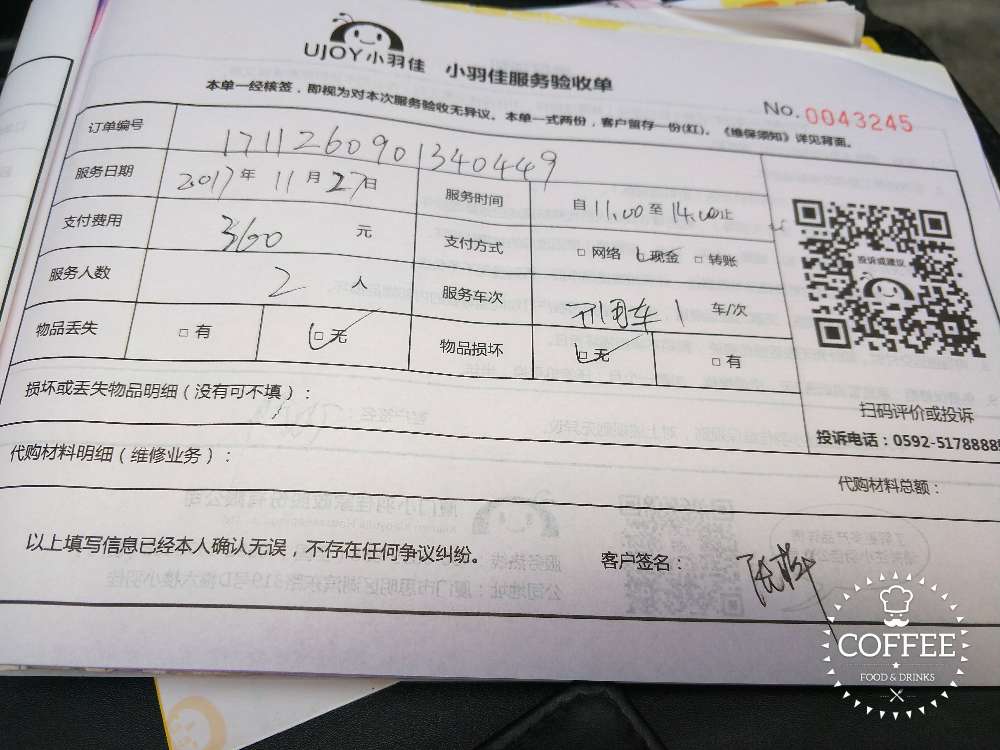 UJOY小羽佳 小羽佳服务验收单
本单一经核签，即视为对本次服务验收无异议。本单一式两份，客户留存一份(红)。《维保须知》详见背面。
No. 0043245
订单编号 1711260901340449
服务日期 2017年 11月 27日 服务时间 自 11.00 至 14.00 止
支付费用 360 元 支付方式 □ 网络 □ 现金 □ 转账
服务人数 2 人 服务车次 1 车/次
物品丢失 □ 有 □ 无 物品损坏 □ 无 □ 有
投诉或建议
扫码评价或投诉
投诉电话：0592-5178888
损坏或丢失物品明细（没有可不填）：
代购材料明细（维修业务）：
代购材料总额：
以上填写信息已经本人确认无误，不存在任何争议纠纷。 客户签名：
COFFEE
FOOD & DRINKS